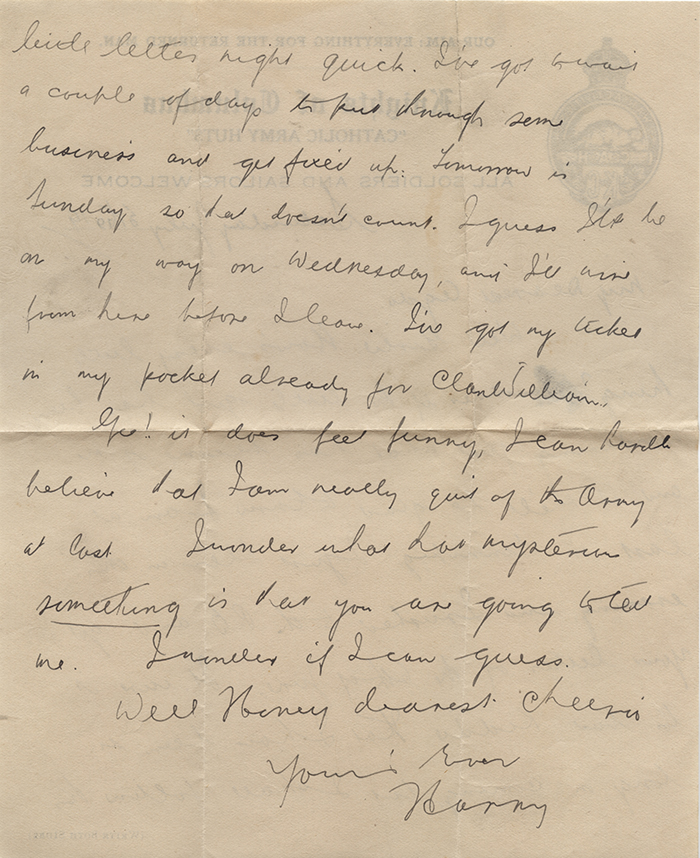 little letter right quick. I've got to wait
a couple of days to put through some
business and get fixed up. Tomorrow is
Sunday so that doesn't count. I guess I'll be
on my way on Wednesday, and I'll wire
from here before I leave. I've got my ticket
in my pocket already for ClanWilliam.
Gee! it does feel funny, I can hardly
believe that I am really quit of the Army
at last I wonder what that mysterious
something is that you are going to tell
me. I wonder if I can guess.
Well Honey dearest Cheerio
Your's Ever
Harry